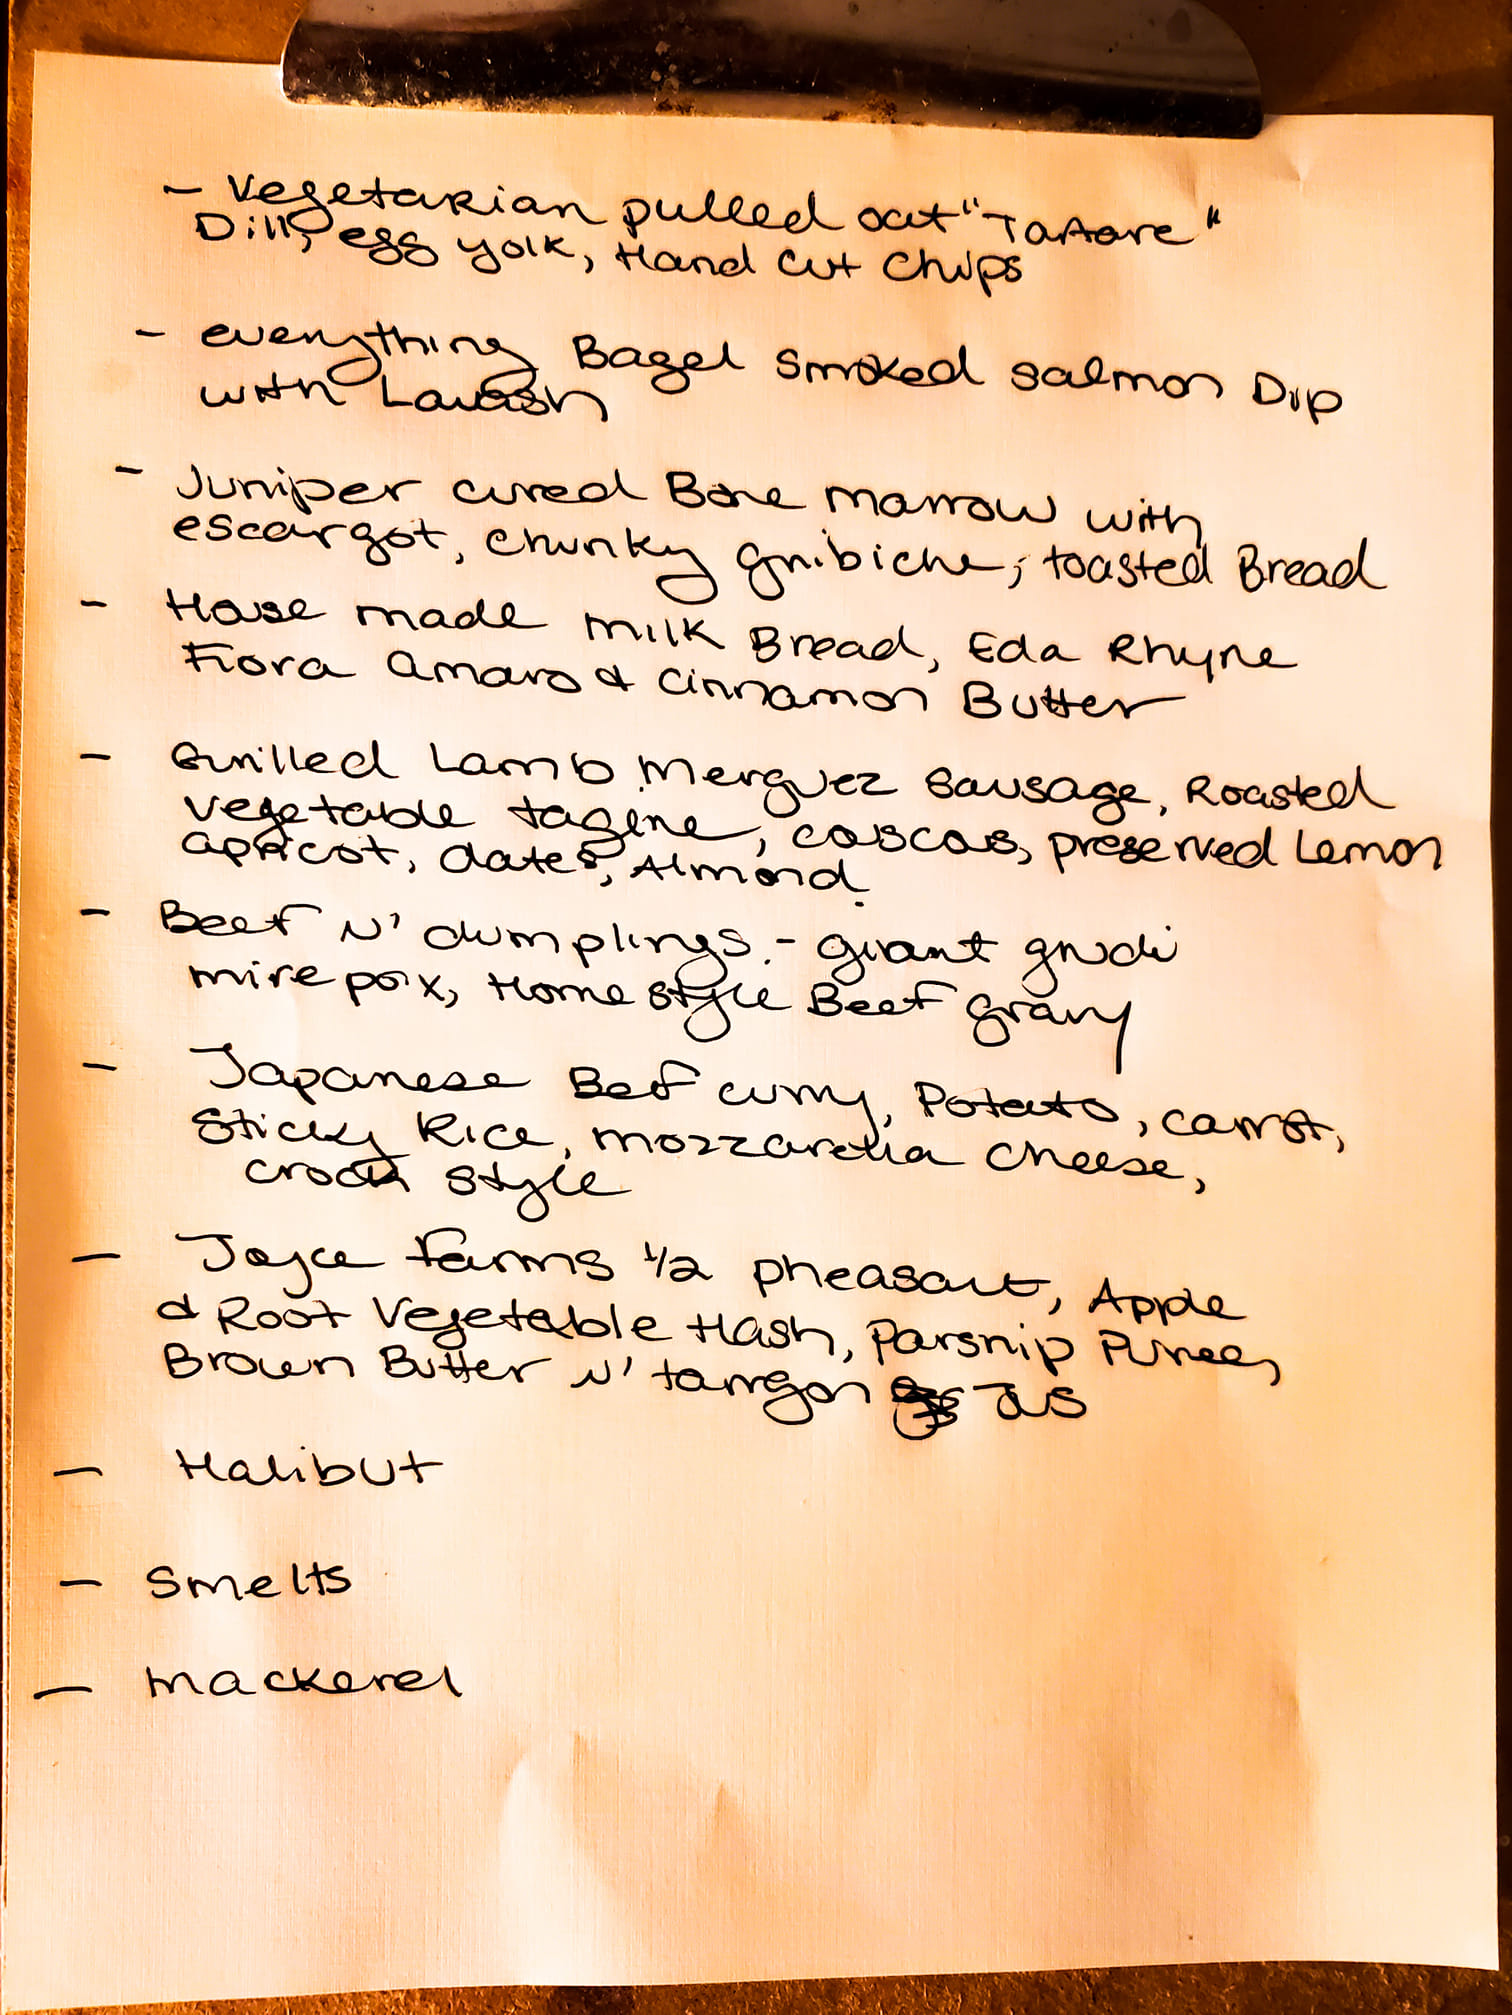 - Vegetarian pulled oat "Tartare"
Dill, egg yolk, Hand cut chips
- everything Bagel smoked salmon Dip
with Lavash
- Juniper cured Bone marrow with
escargot, chunky gribiche, toasted Bread
- House made milk Bread, Eda Rhyne
Fiora Amaro & cinnamon Butter
- Grilled Lamb Merguez sausage, Roasted
vegetable tagine, couscous, preserved Lemon
apricot, dates, Almond.
- Beef N' dumplings. - giant gnudi
mirepoix, Home style Beef gravy
- Japanese Beef curry, Potato, carrot,
sticky Rice, mozzarella cheese,
crock style
- Joyce Farms 1/2 pheasant, Apple
& Root Vegetable Hash, Parsnip Puree,
Brown Butter N' tarragon Jus
- Halibut
- Smelts
- mackerel